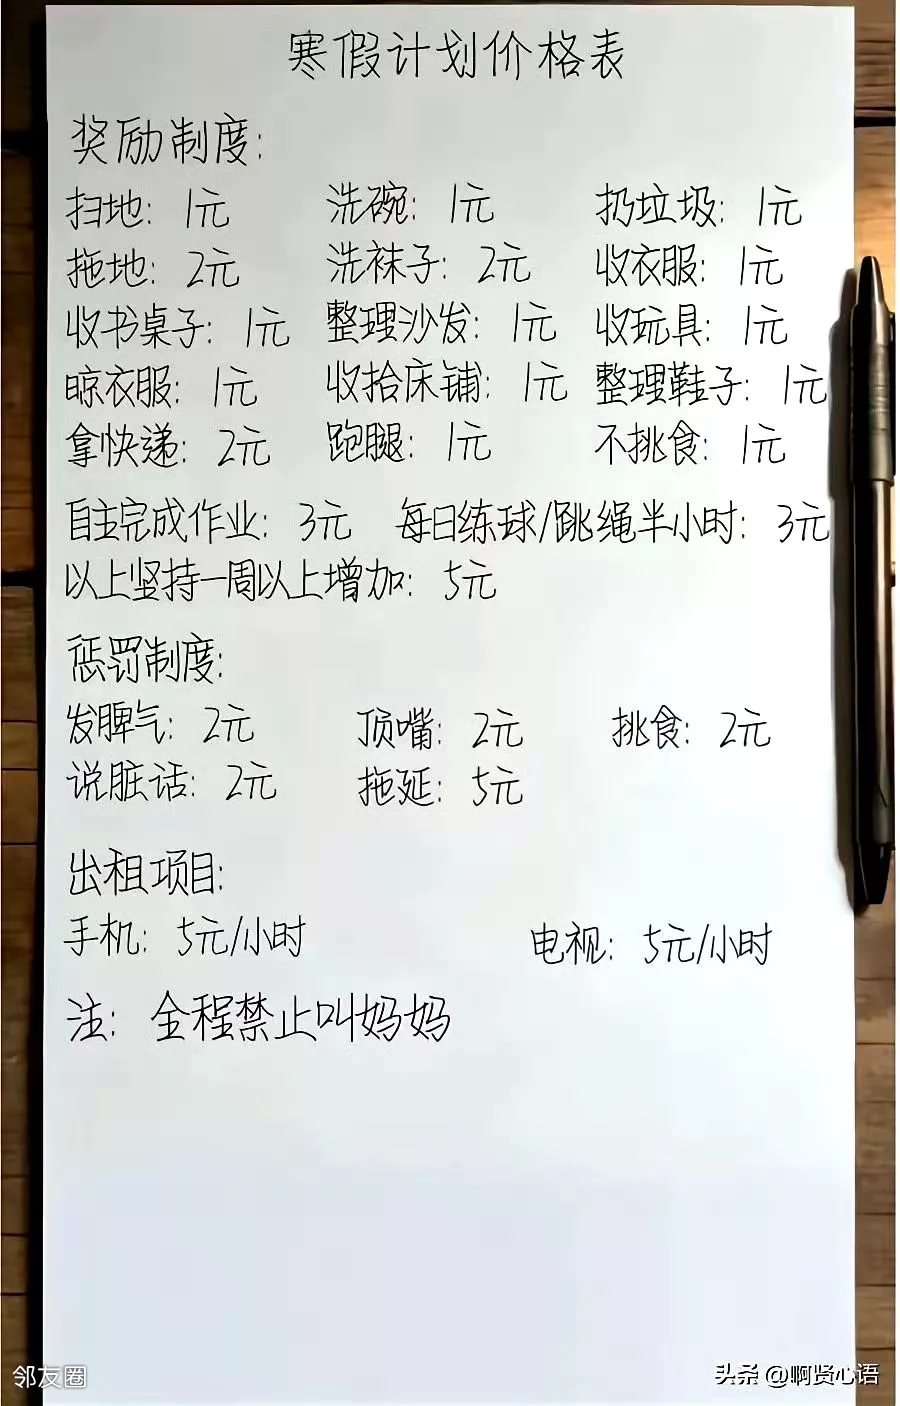 寒假计划价格表
奖励制度:
扫地: 1元 洗碗: 1元 扔垃圾: 1元
拖地: 2元 洗袜子: 2元 收衣服: 1元
收书桌子: 1元 整理沙发: 1元 收玩具: 1元
晾衣服: 1元 收拾床铺: 1元 整理鞋子: 1元
拿快递: 2元 跑腿: 1元 不挑食: 1元
自主完成作业: 3元 每日练球/跳绳半小时: 3元
以上坚持一周以上增加: 5元
惩罚制度:
发脾气: 2元 顶嘴: 2元 挑食: 2元
说脏话: 2元 拖延: 5元
出租项目:
手机: 5元/小时 电视: 5元/小时
注: 全程禁止叫妈妈
邻友圈 头条 @啊贤心语